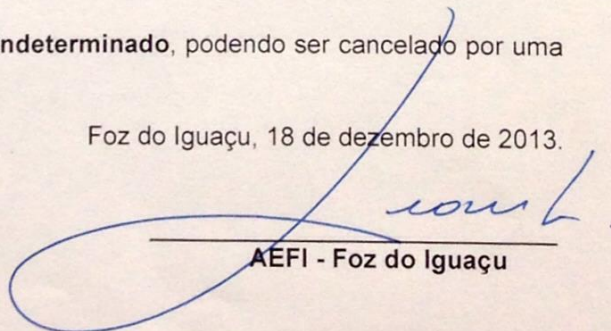 ndeterminado, podendo ser cancelado por uma
Foz do Iguaçu, 18 de dezembro de 2013.
AEFI - Foz do Iguaçu